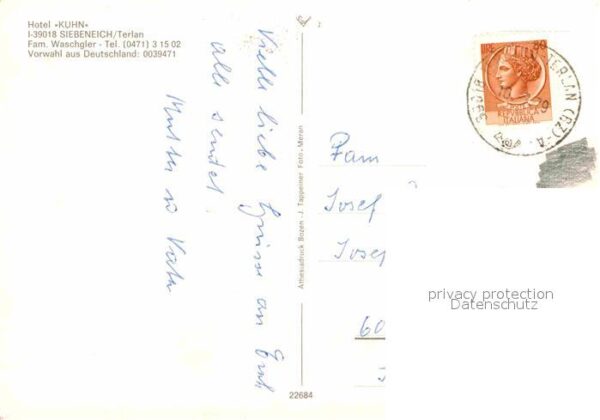 Hotel «KUHN»
I-39018 SIEBENEICH/Terlan
Fam. Waschgler - Tel. (0471) 3 15 02
Vorwahl aus Deutschland: 0039471
Viele liebe Grüsse an Euch
alle sendet
Mutter u Vater
Athesiadruck Bozen - J. Tappeiner Foto-Meran
22684
90
ITALIANA
TERLAN (BZ)
Fam
Josef
Josef
60
privacy protection
Datenschutz